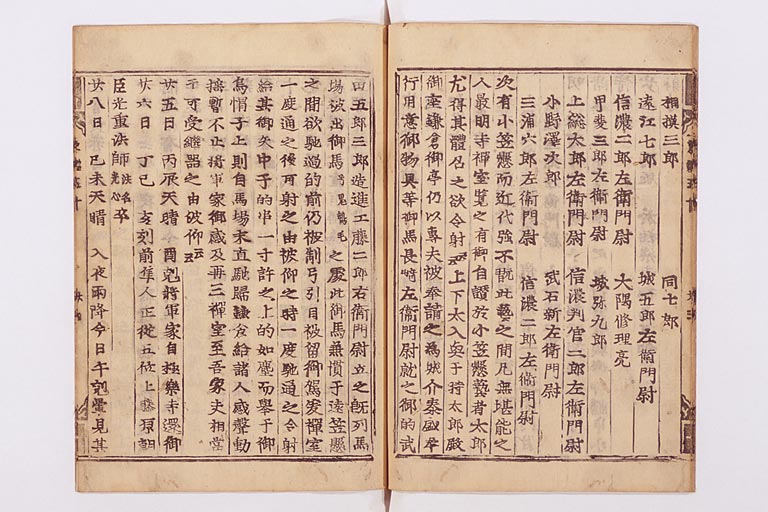 相摸三郎 同七郎
遠江七郎 城五郎左衛門尉
信濃二郎左衛門尉 大隅修理亮
甲斐三郎左衛門尉 城弥九郎
上総太郎左衛門尉 信濃判官二郎左衛門尉
小野澤次郎 武石新左衛門尉
三浦六郎左衛門尉 信濃二郎左衛門尉
次有小笠懸而近代強不翫此藝之間凡無堪能之
人最明寺禅室覧之有御自讃於小笠懸藝者太郎
尤得其體召之欲令射云云上下太入興于時太郎殿
御座鎌倉御亭仍以專夫被奉請之為城介泰盛奉
行用意御物具等御馬長崎左衛門尉就之御的武
田五郎三郎造進工藤二郎右衛門尉立之既列馬
場被出御馬号鬼鴾毛之處此御馬兼慣于遠笠懸
之間欲馳過的前仍被制弓引目被留御駕爰禅室
一度通之後可射之由被仰之時一度馳通之令射
給其御矢中于的串一寸許之上的如塵而舉于御
烏帽子上則自馬場末直馳歸鎌倉給諸人感聲動
揺暫不止將軍家御感及再三禅室至吾家夫相當
于可受繼器之由被仰云云
廿五日丙辰天晴今酉剋將軍家自極樂寺還御
廿六日丁巳亥刻前隼人正從五位上藤原朝
臣光重法師法名光心卒
廿八日己未天晴 入夜雨降今日午剋暈見其